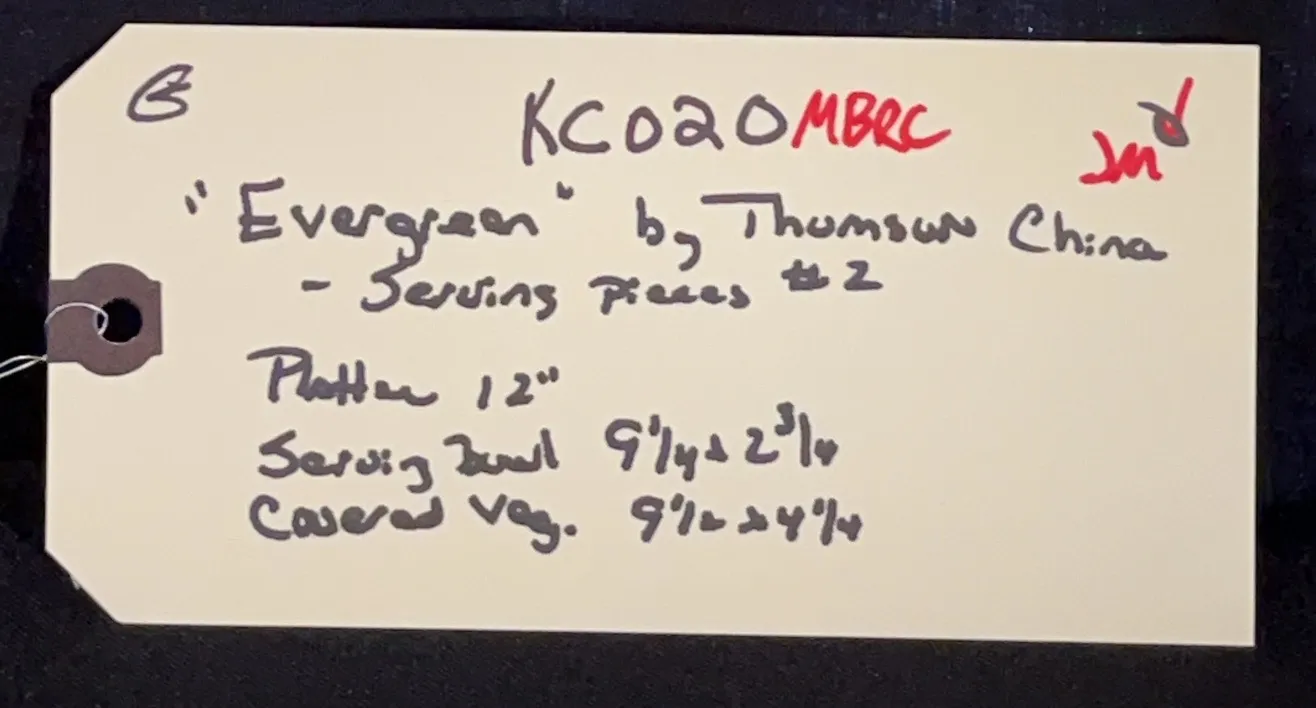 KC020 MBRC
"Evergreen" by Thomson China
- Serving Pieces #2
Platter 12"
Serving Bowl 9 1/4 x 2 3/4
Covered Veg. 9 1/2 x 4 1/4